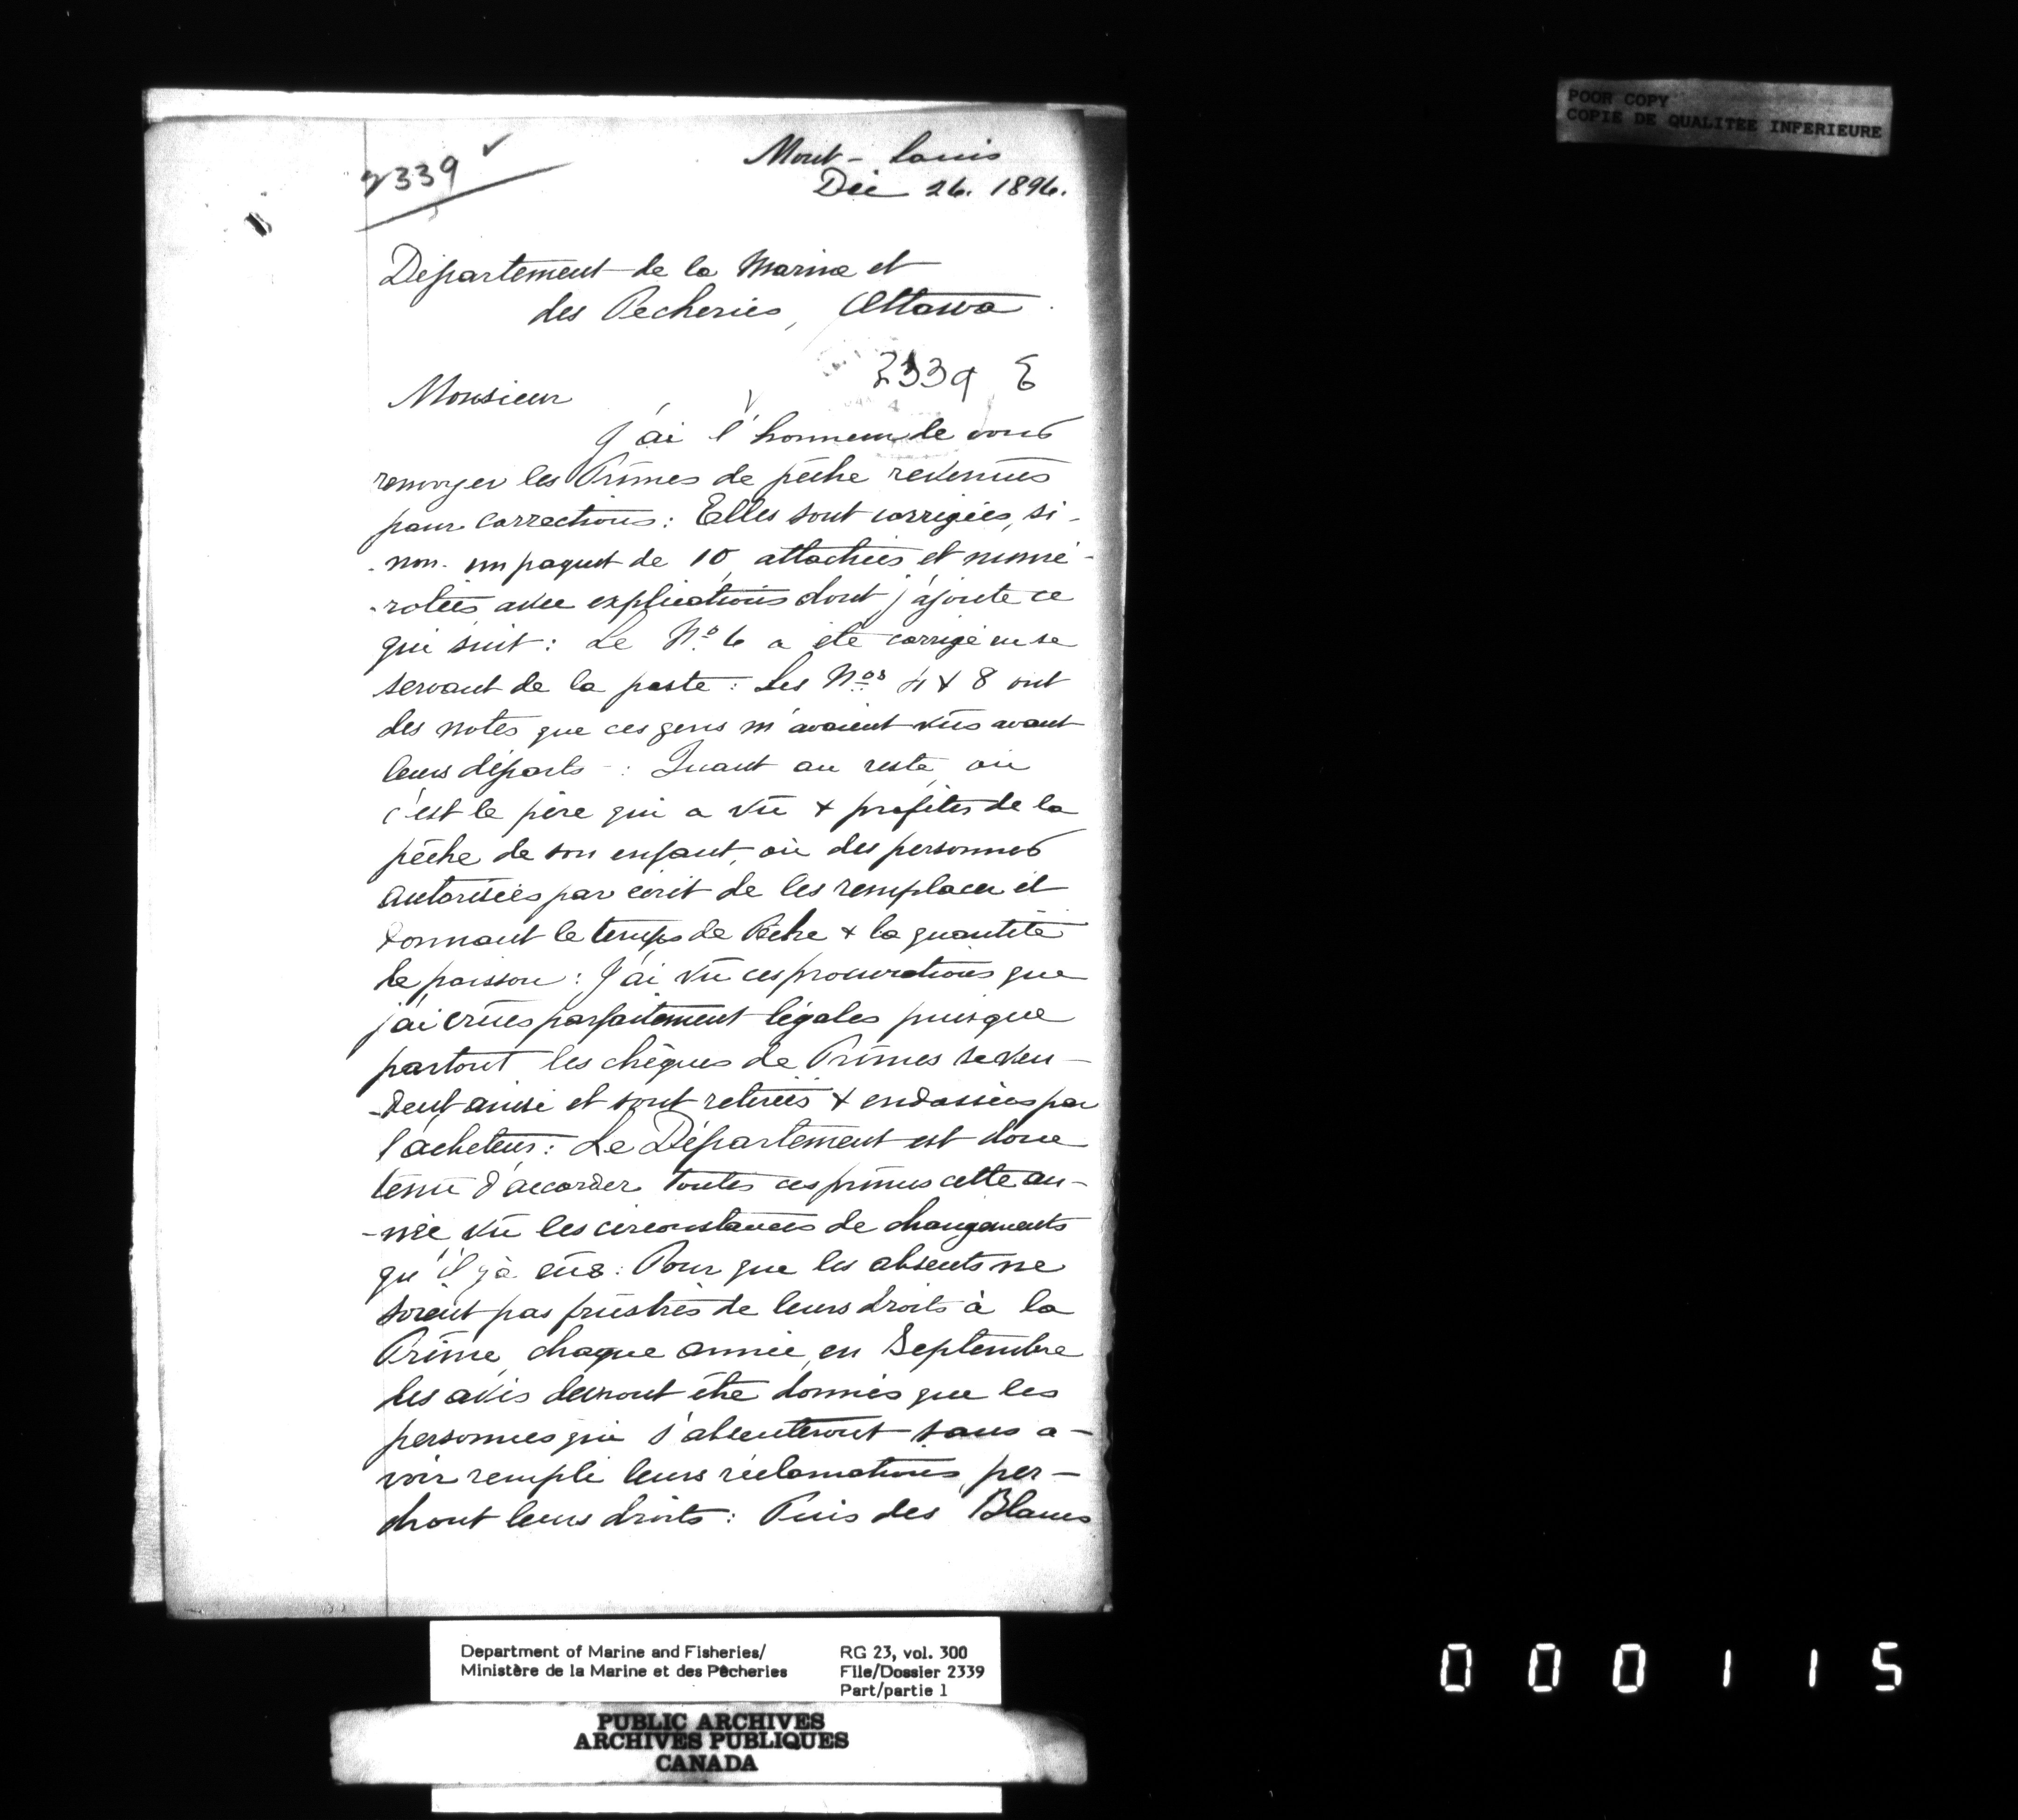 POOR COPY
COPIE DE QUALITEE INFERIEURE
2339
Mont-Louis
Déc 26. 1896.
Département de la Marine et
des Pecheries, Ottawa.
2339 E
Monsieur
J'ai l'honneur de vous
renvoyer les Primes de pêche revenues
pour corrections: Elles sont corrigées, si-
-non un paquet de 10, attachées et numé-
-rotées avec explications dont j'ajoute ce
qui suit: Le No. 6 a été corrigé en se
servant de la poste: Les Nos 4 & 8 ont
des notes que ces gens m'avaient vûs avant
leurs départs -: Quant au reste, où
c'est le père qui a vû & profiter de la
pêche de son enfant, où des personnes
autorisées par écrit de les remplacer et
donnant le temps de Pêche & la quantité
de poisson: J'ai vû ces procurations que
j'ai crûes parfaitement légales puisque
partout les chèques de Primes se ven-
-dent ainsi et sont retirées & endossées par
l'acheteur: Le Département est donc
tenu d'accorder toutes ces primes cette an-
-née vû les circonstances de changements
qu'il y a eûs: Pour que les absents ne
soient pas frustrés de leurs droits à la
Prime, chaque année, en Septembre
les avis devront être donnés que les
personnes qui s'absenteront sans a-
voir rempli leurs réclamations, per-
dront leurs droits: Puis des Blancs
Department of Marine and Fisheries/
Ministère de la Marine et des Pêcheries
RG 23, vol. 300
File/Dossier 2339
Part/partie 1
PUBLIC ARCHIVES
ARCHIVES PUBLIQUES
CANADA
000115